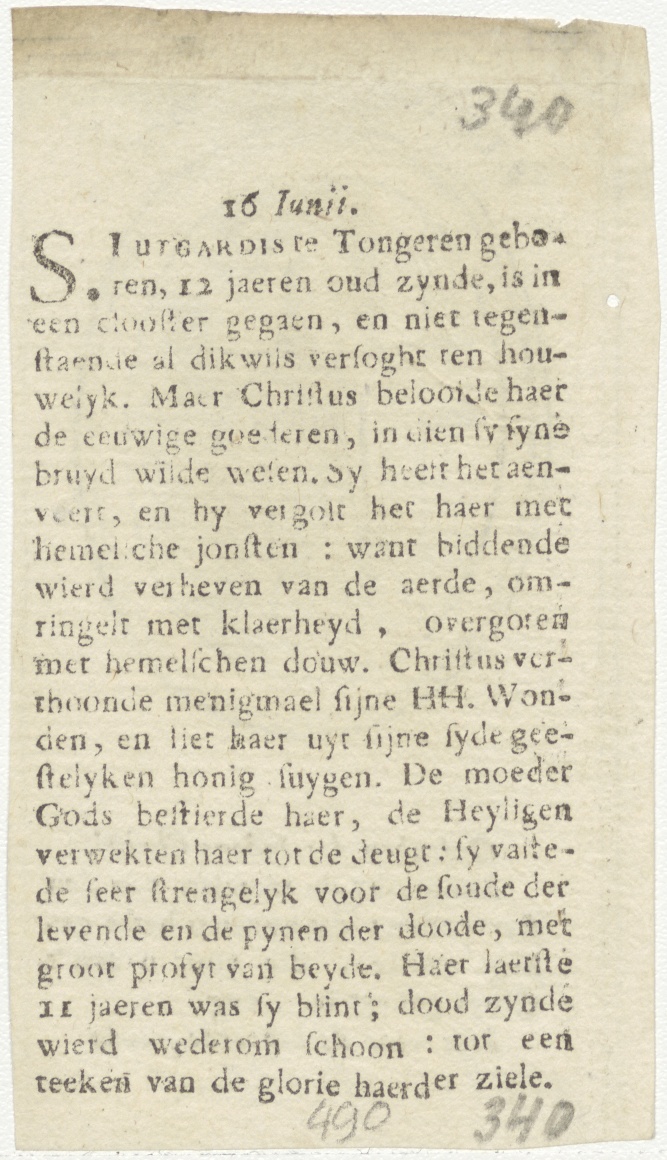 340
16 Iunii.
S. LUTGARDIS te Tongeren gebo-
ren, 12 jaeren oud zynde, is in
een clooster gegaen, en niet tegen-
staende al dikwils versoght ten hou-
welyk. Maer Christus beloofde haer
de eeuwige goederen, indien sy syne
bruyd wilde wesen. Sy heeft het aen-
veert, en hy vergolt het haer met
hemelsche jonsten : want biddende
wierd verheven van de aerde, om-
ringelt met klaerheyd , overgoten
met hemelschen douw. Christus ver-
thoonde menigmael sijne HH. Won-
den, en liet haer uyt sijne syde gee-
stelyken honig suygen. De moeder
Gods bestierde haer, de Heyligen
verwekten haer tot de deugt : sy vaste-
de seer strengelyk voor de soude der
levende en de pynen der doode, met
groot profyt van beyde. Haer laetste
11 jaeren was sy blint ; dood zynde
wierd wederom schoon : tot een
teeken van de glorie haerder ziele.
490 340